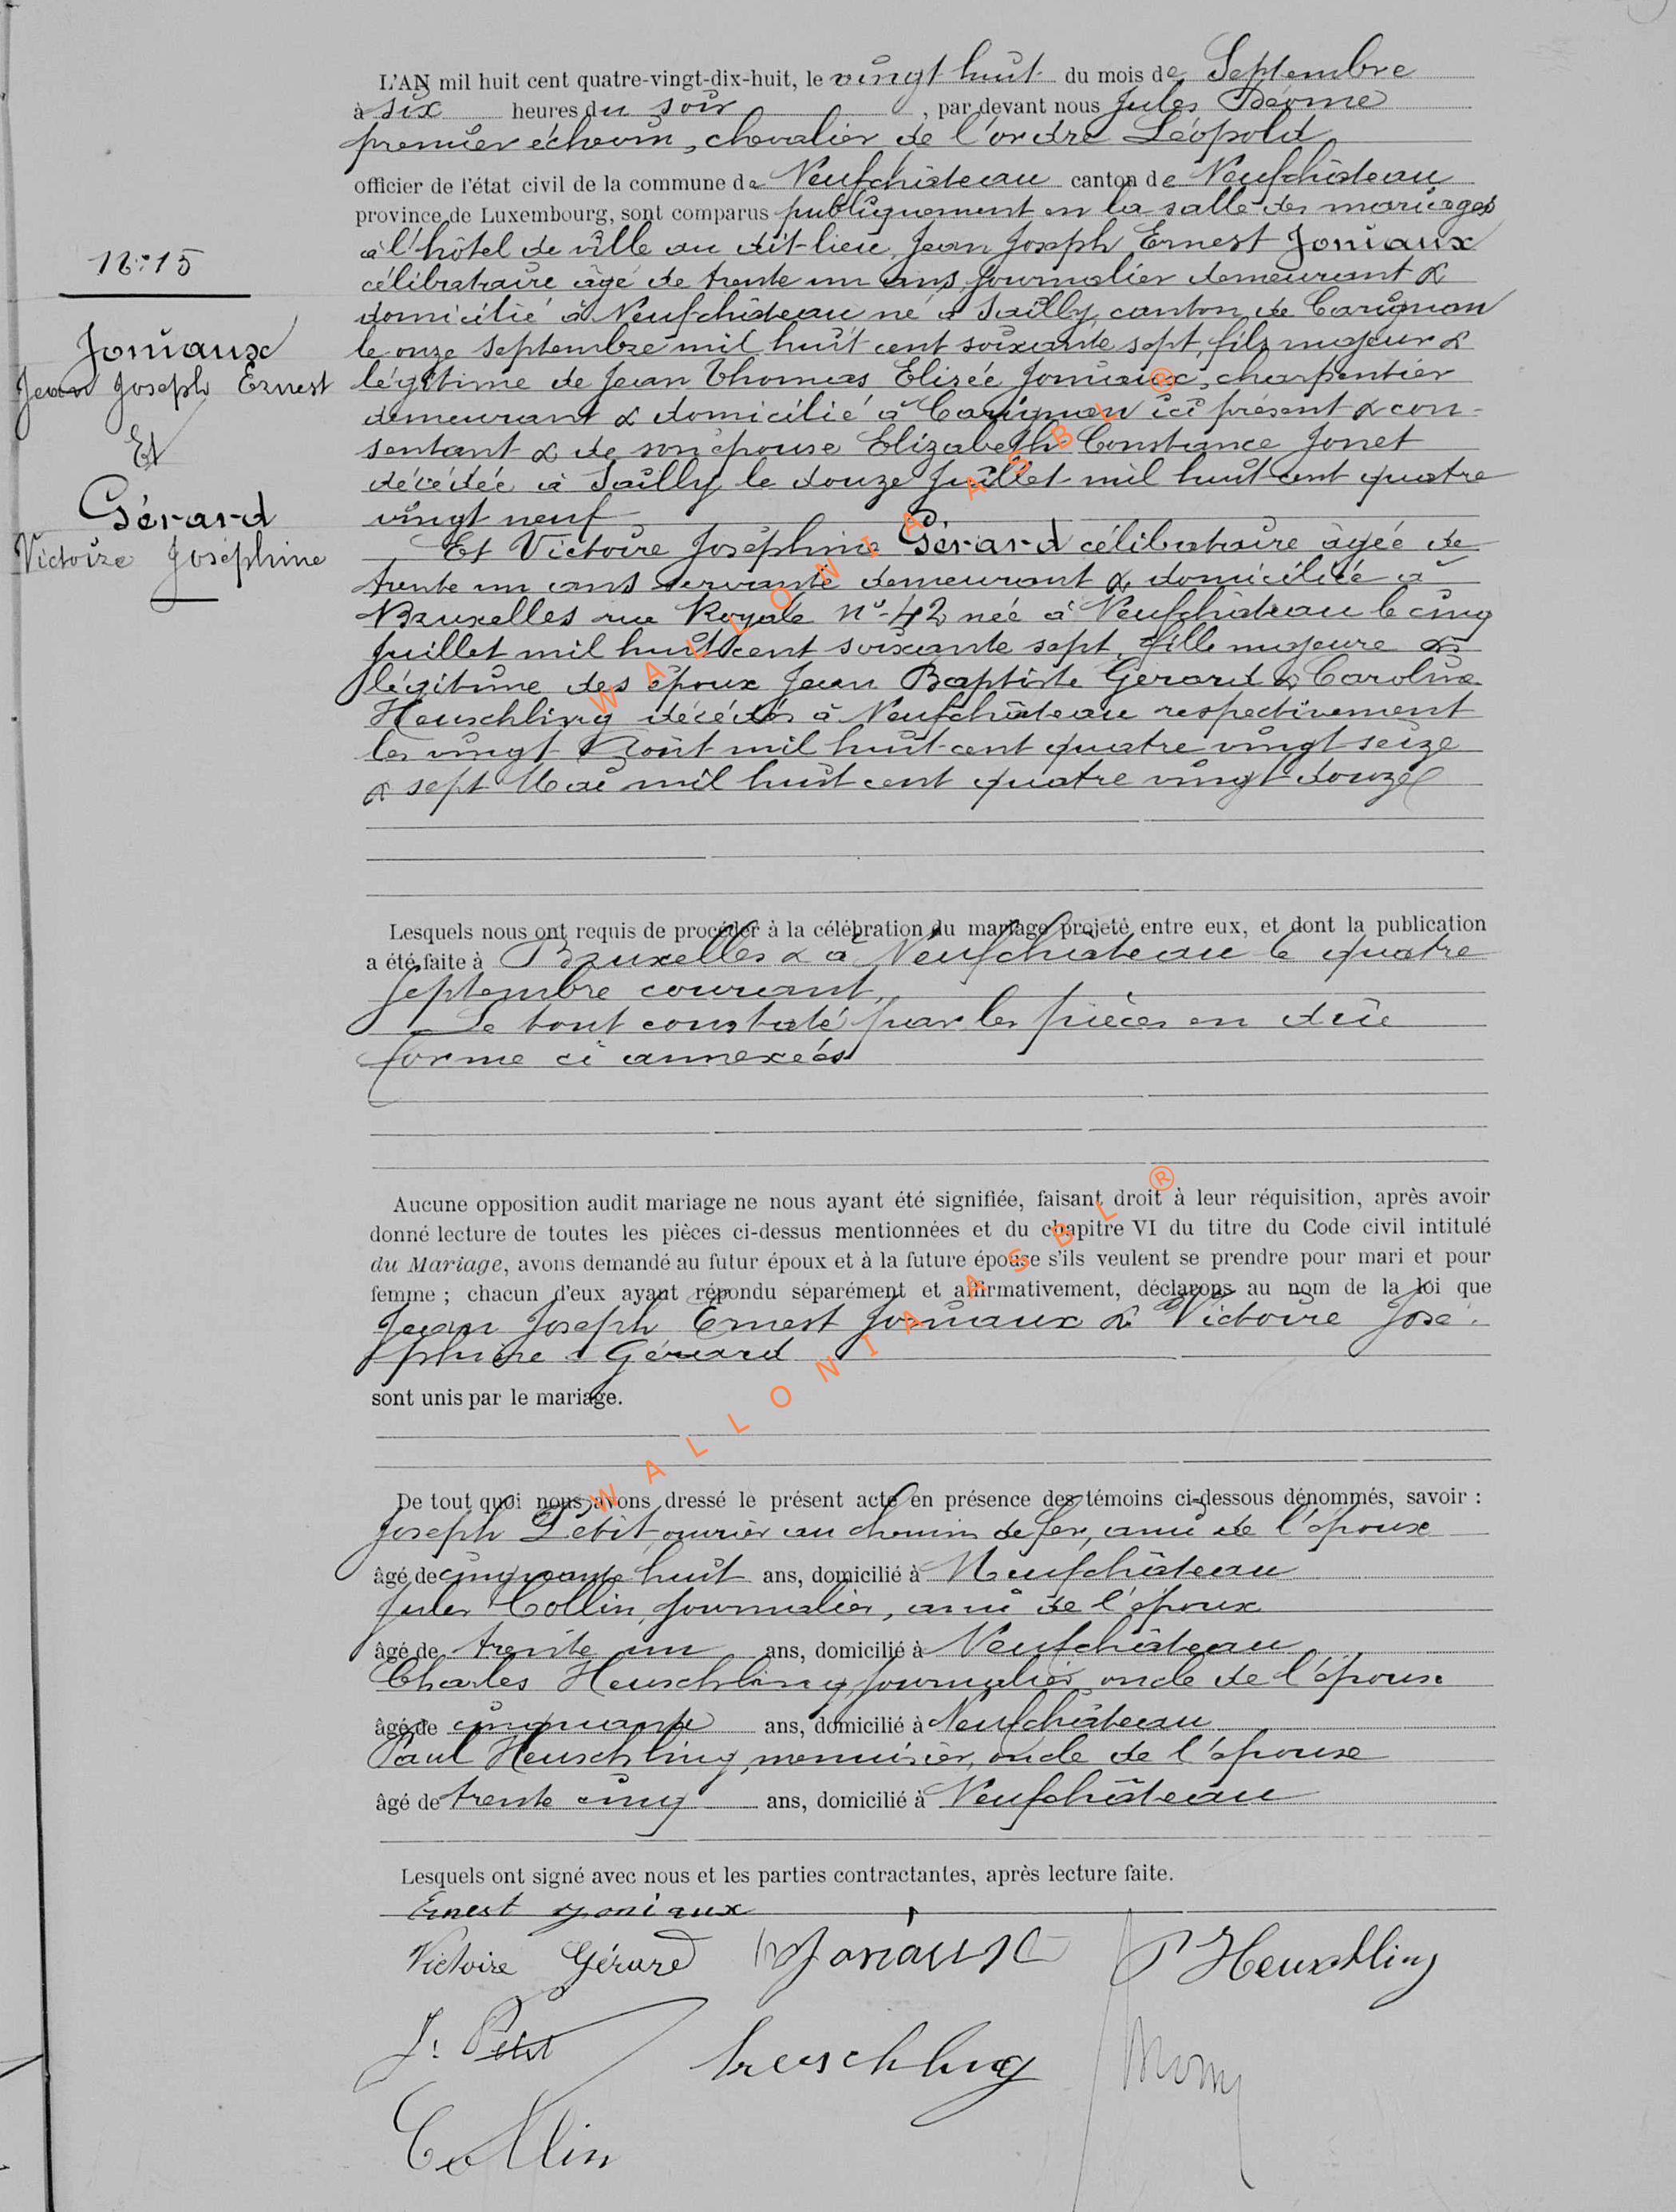 L'AN mil huit cent quatre-vingt-dix-huit, le vingt huit du mois de Septembre
à six heures du soir, par devant nous Jules
premier échevin, chevalier de l'ordre Léopold
officier de l'état civil de la commune de Neufchâteau canton de Neufchâteau
province de Luxembourg, sont comparus publiquement en la salle des mariages
à l'hôtel de ville au dit-lieu, Jean Joseph Ernest Joniaux
célibataire âgé de trente un ans, journalier demeurant &
domicilié à Neufchâteau né à Sailly, canton de Carignan
le onze Septembre mil huit cent soixante sept, fils majeur &
légitime de Jean Thomas Elizée Joniaux, charpentier
demeurant & domicilié à Carignan ici présent & con-
sentant & de son épouse Elizabeth Constance Jonet
décédée à Sailly le douze Juillet mil huit cent quatre
vingt neuf
Et Victoire Joséphine Gérard célibataire âgée de
trente un ans servante demeurant & domiciliée à
Bruxelles rue Royale n°-42 née à Neufchâteau le cinq
Juillet mil huit cent soixante sept, fille majeure &
légitime des époux Jean Baptiste Gerard & Caroline
Heuschling décédés à Neufchâteau respectivement
les vingt Août mil huit cent quatre vingt seize
& sept Mai mil huit cent quatre vingt douze
18:15
Joniaux
Jean Joseph Ernest
Et
Gérard
Victoire Joséphine
Lesquels nous ont requis de procéder à la célébration du mariage projeté entre eux, et dont la publication
a été faite à Bruxelles & à Neufchâteau le quatre
Septembre courant,
Le tout constaté par les pièces en dûe
forme ci annexées
Aucune opposition audit mariage ne nous ayant été signifiée, faisant droit à leur réquisition, après avoir
donné lecture de toutes les pièces ci-dessus mentionnées et du chapitre VI du titre du Code civil intitulé
du Mariage, avons demandé au futur époux et à la future épouse s'ils veulent se prendre pour mari et pour
femme ; chacun d'eux ayant répondu séparément et affirmativement, déclarons au nom de la loi que
Jean Joseph Ernest Joniaux & Victoire José-
phine Gérard
sont unis par le mariage.
De tout quoi nous avons dressé le présent acte en présence des témoins ci-dessous dénommés, savoir :
Joseph Petit, ouvrier au chemin de fer, ami de l'époux
âgé de cinquante huit ans, domicilié à Neufchâteau
Jules Collin, journalier, ami de l'époux
âgé de trente un ans, domicilié à Neufchâteau
Charles Heuschling, journalier oncle de l'épouse
âgé de cinquante ans, domicilié à Neufchâteau
Paul Heuschling, menuisier, oncle de l'épouse
âgé de trente cinq ans, domicilié à Neufchâteau
Lesquels ont signé avec nous et les parties contractantes, après lecture faite.
Ernest Joniaux
Victoire Gérard Joniaux P Heuschling
J. Petit heuschling
Collin
WALLONIA ASBL ®
WALLONIA ASBL ®